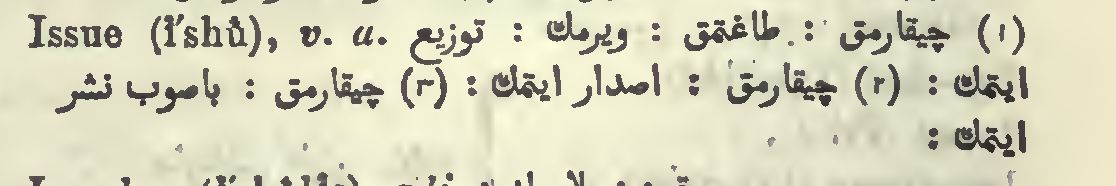 Issue (ĭ′shû), v. a. (١) چیقارمق : طاغتمق : ویرمك : توزیع
ایتمك : (٢) چیقارمق : اصدار ایتمك : (٣) چیقارمق : باصوب نشر
ایتمك :